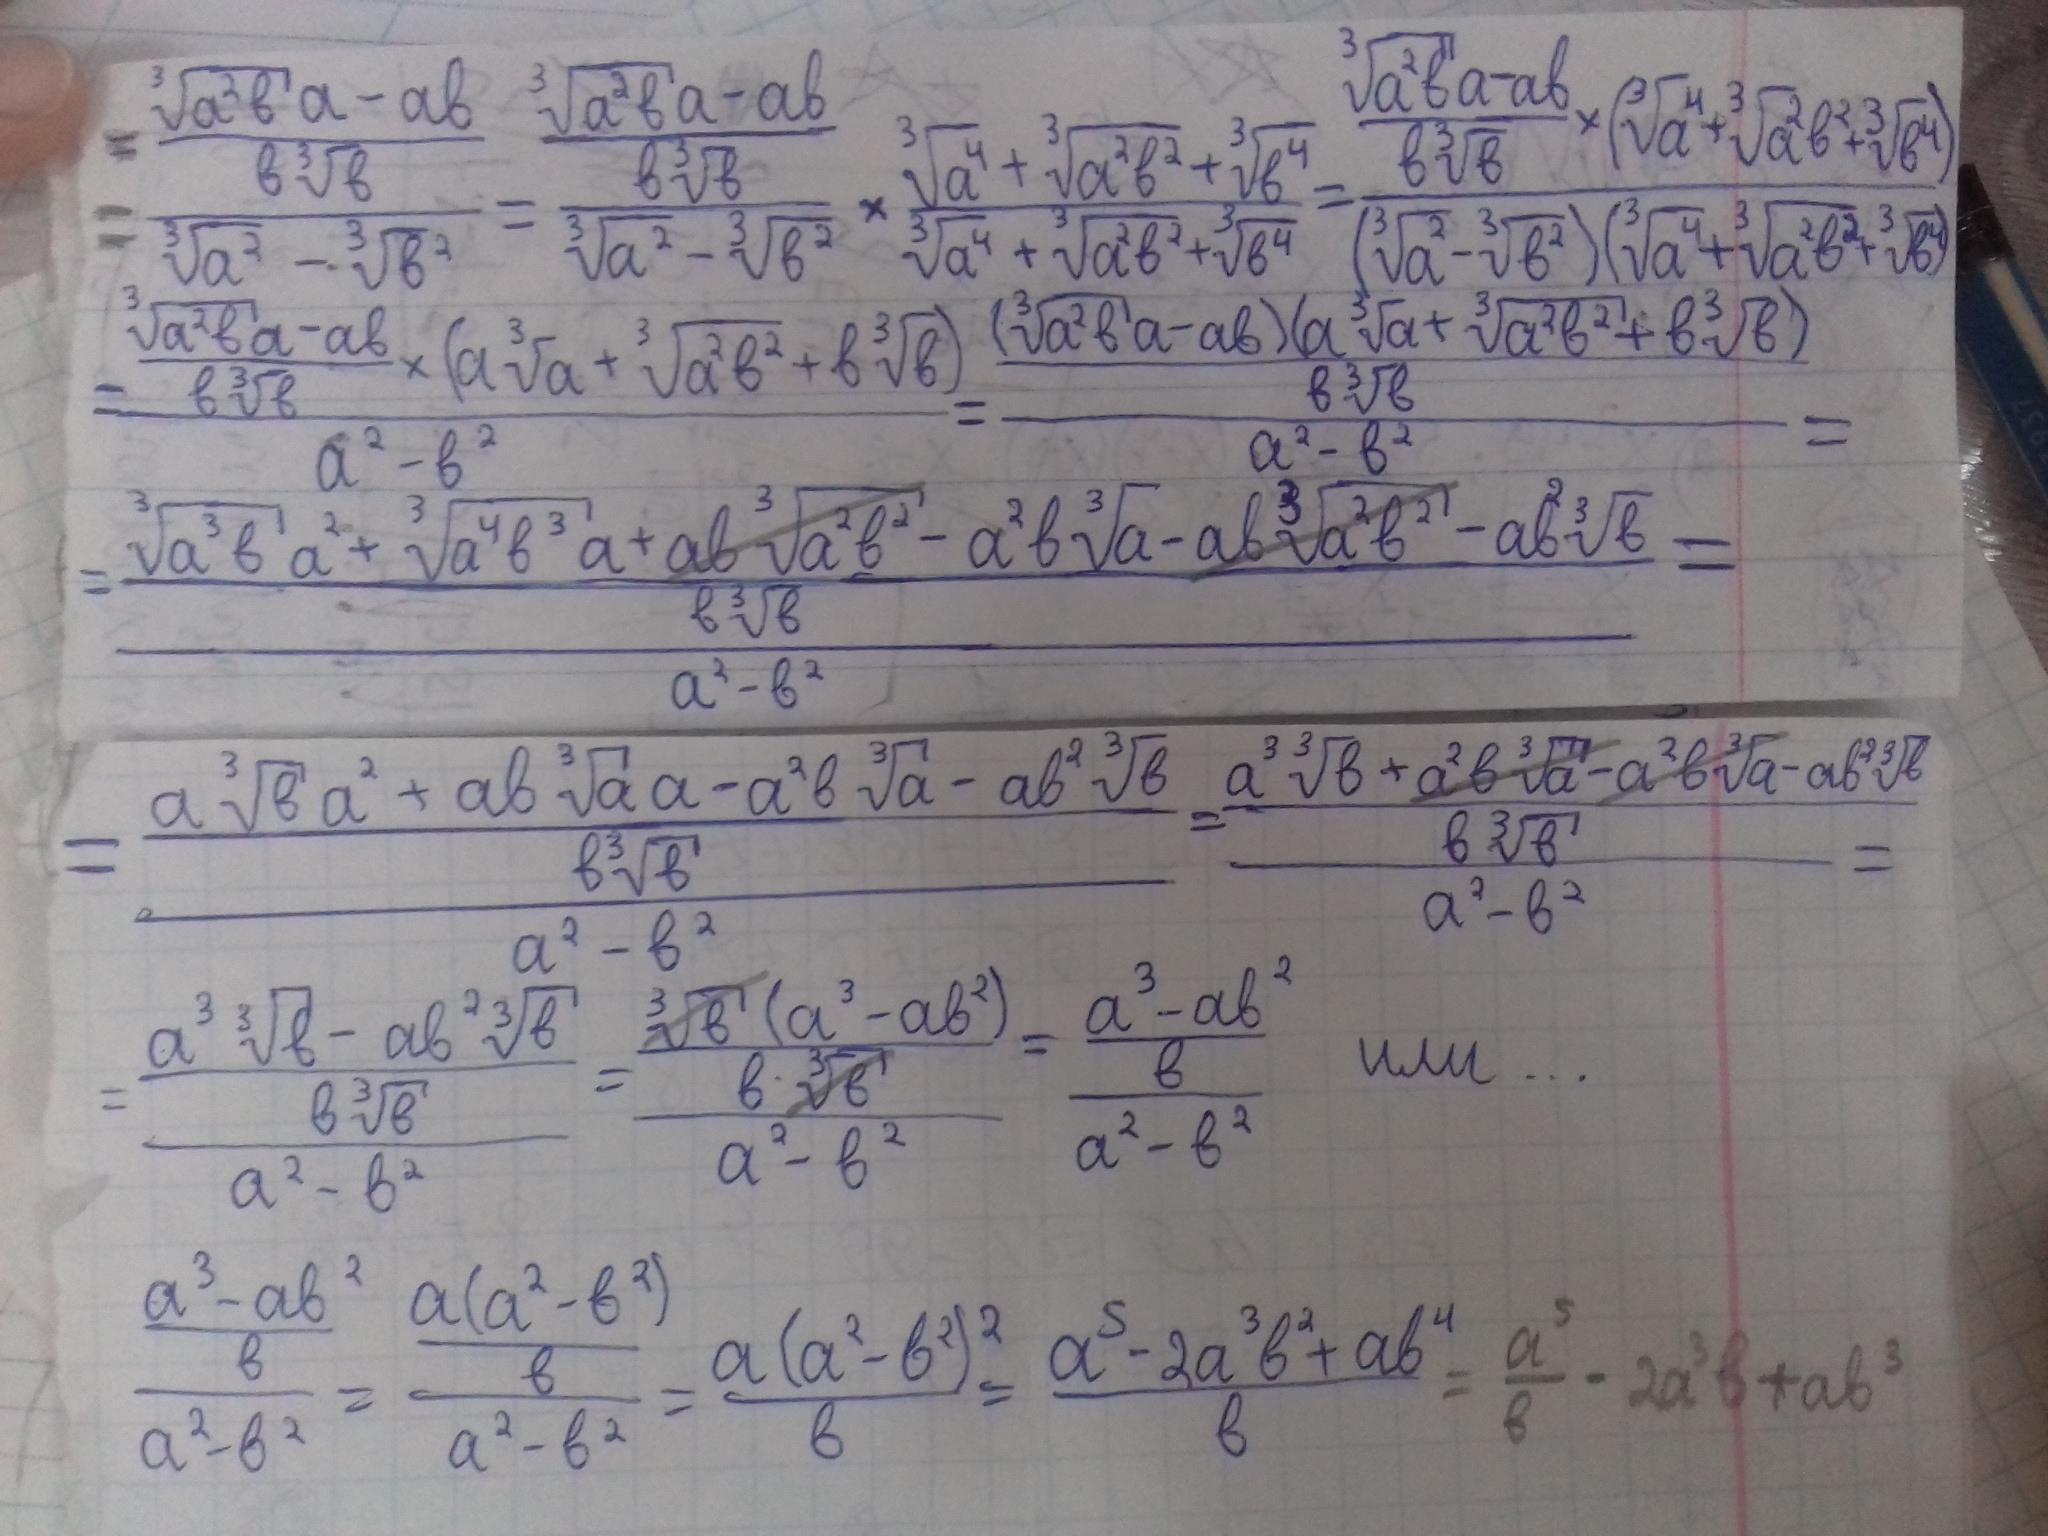 = \frac{\frac{\sqrt[3]{a^2в}a-aв}{в\sqrt[3]{в}}}{\sqrt[3]{a^2}-\sqrt[3]{в^2}} = \frac{\frac{\sqrt[3]{a^2в}a-aв}{в\sqrt[3]{в}}}{\sqrt[3]{a^2}-\sqrt[3]{в^2}} × \frac{\sqrt[3]{a^4}+\sqrt[3]{a^2в^2}+\sqrt[3]{в^4}}{\sqrt[3]{a^4}+\sqrt[3]{a^2в^2}+\sqrt[3]{в^4}} = \frac{\frac{\sqrt[3]{a^2в}a-aв}{в\sqrt[3]{в}}×(\sqrt[3]{a^4}+\sqrt[3]{a^2в^2}+\sqrt[3]{в^4})}{(\sqrt[3]{a^2}-\sqrt[3]{в^2})(\sqrt[3]{a^4}+\sqrt[3]{a^2в^2}+\sqrt[3]{в^4})}
= \frac{\frac{\sqrt[3]{a^2в}a-aв}{в\sqrt[3]{в}}×(a\sqrt[3]{a}+\sqrt[3]{a^2в^2}+в\sqrt[3]{в})}{a^2-в^2} = \frac{\frac{(\sqrt[3]{a^2в}a-aв)(a\sqrt[3]{a}+\sqrt[3]{a^2в^2}+в\sqrt[3]{в})}{в\sqrt[3]{в}}}{a^2-в^2} =
= \frac{\frac{\sqrt[3]{a^3в}a^2+\sqrt[3]{a^4в^3}a+aв\sqrt[3]{a^2в^2}-a^2в\sqrt[3]{a}-aв\sqrt[3]{a^2в^2}-aв^2\sqrt[3]{в}}{в\sqrt[3]{в}}}{a^2-в^2} =
= \frac{\frac{a\sqrt[3]{в}a^2+aв\sqrt[3]{a}a-a^2в\sqrt[3]{a}-aв^2\sqrt[3]{в}}{в\sqrt[3]{в}}}{a^2-в^2} = \frac{\frac{a^3\sqrt[3]{в}+a^2в\sqrt[3]{a}-a^2в\sqrt[3]{a}-aв^2\sqrt[3]{в}}{в\sqrt[3]{в}}}{a^2-в^2} =
= \frac{\frac{a^3\sqrt[3]{в}-aв^2\sqrt[3]{в}}{в\sqrt[3]{в}}}{a^2-в^2} = \frac{\frac{\sqrt[3]{в}(a^3-aв^2)}{в·\sqrt[3]{в}}}{a^2-в^2} = \frac{\frac{a^3-aв^2}{в}}{a^2-в^2} или ...
\frac{\frac{a^3-aв^2}{в}}{a^2-в^2} = \frac{\frac{a(a^2-в^2)}{в}}{a^2-в^2} = \frac{a(a^2-в^2)^2}{в} = \frac{a^5-2a^3в^2+aв^4}{в} = \frac{a^5}{в}-2a^3в+aв^3